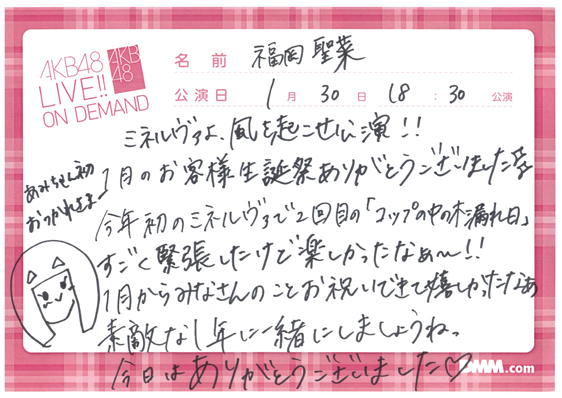 AKB48
LIVE!!
ON DEMAND
AKB
48
名前 福岡 聖菜
公演日 1月30日 18:30公演
ミネルヴァよ、風を起こせ公演!!
1月のお客様生誕祭ありがとうございました
今年初のミネルヴァで2回目の「コップの中の木漏れ日」
すごく緊張したけど楽しかったなぁ〜!!
1月からみなさんのことお祝いできて嬉しかったなぁ
素敵な1年に一緒にしましょうね。
今日はありがとうございました♡
あみちゃん初
おつかれさま
DMM.com